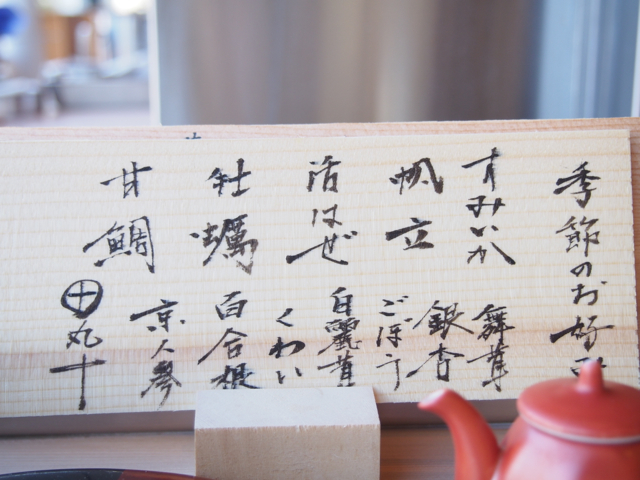 季節のお好み
すみいか
帆立
活はぜ
牡蠣
甘鯛
舞茸
銀杏
ごぼう
白麗茸
くわい
百合根
京人参
丸十